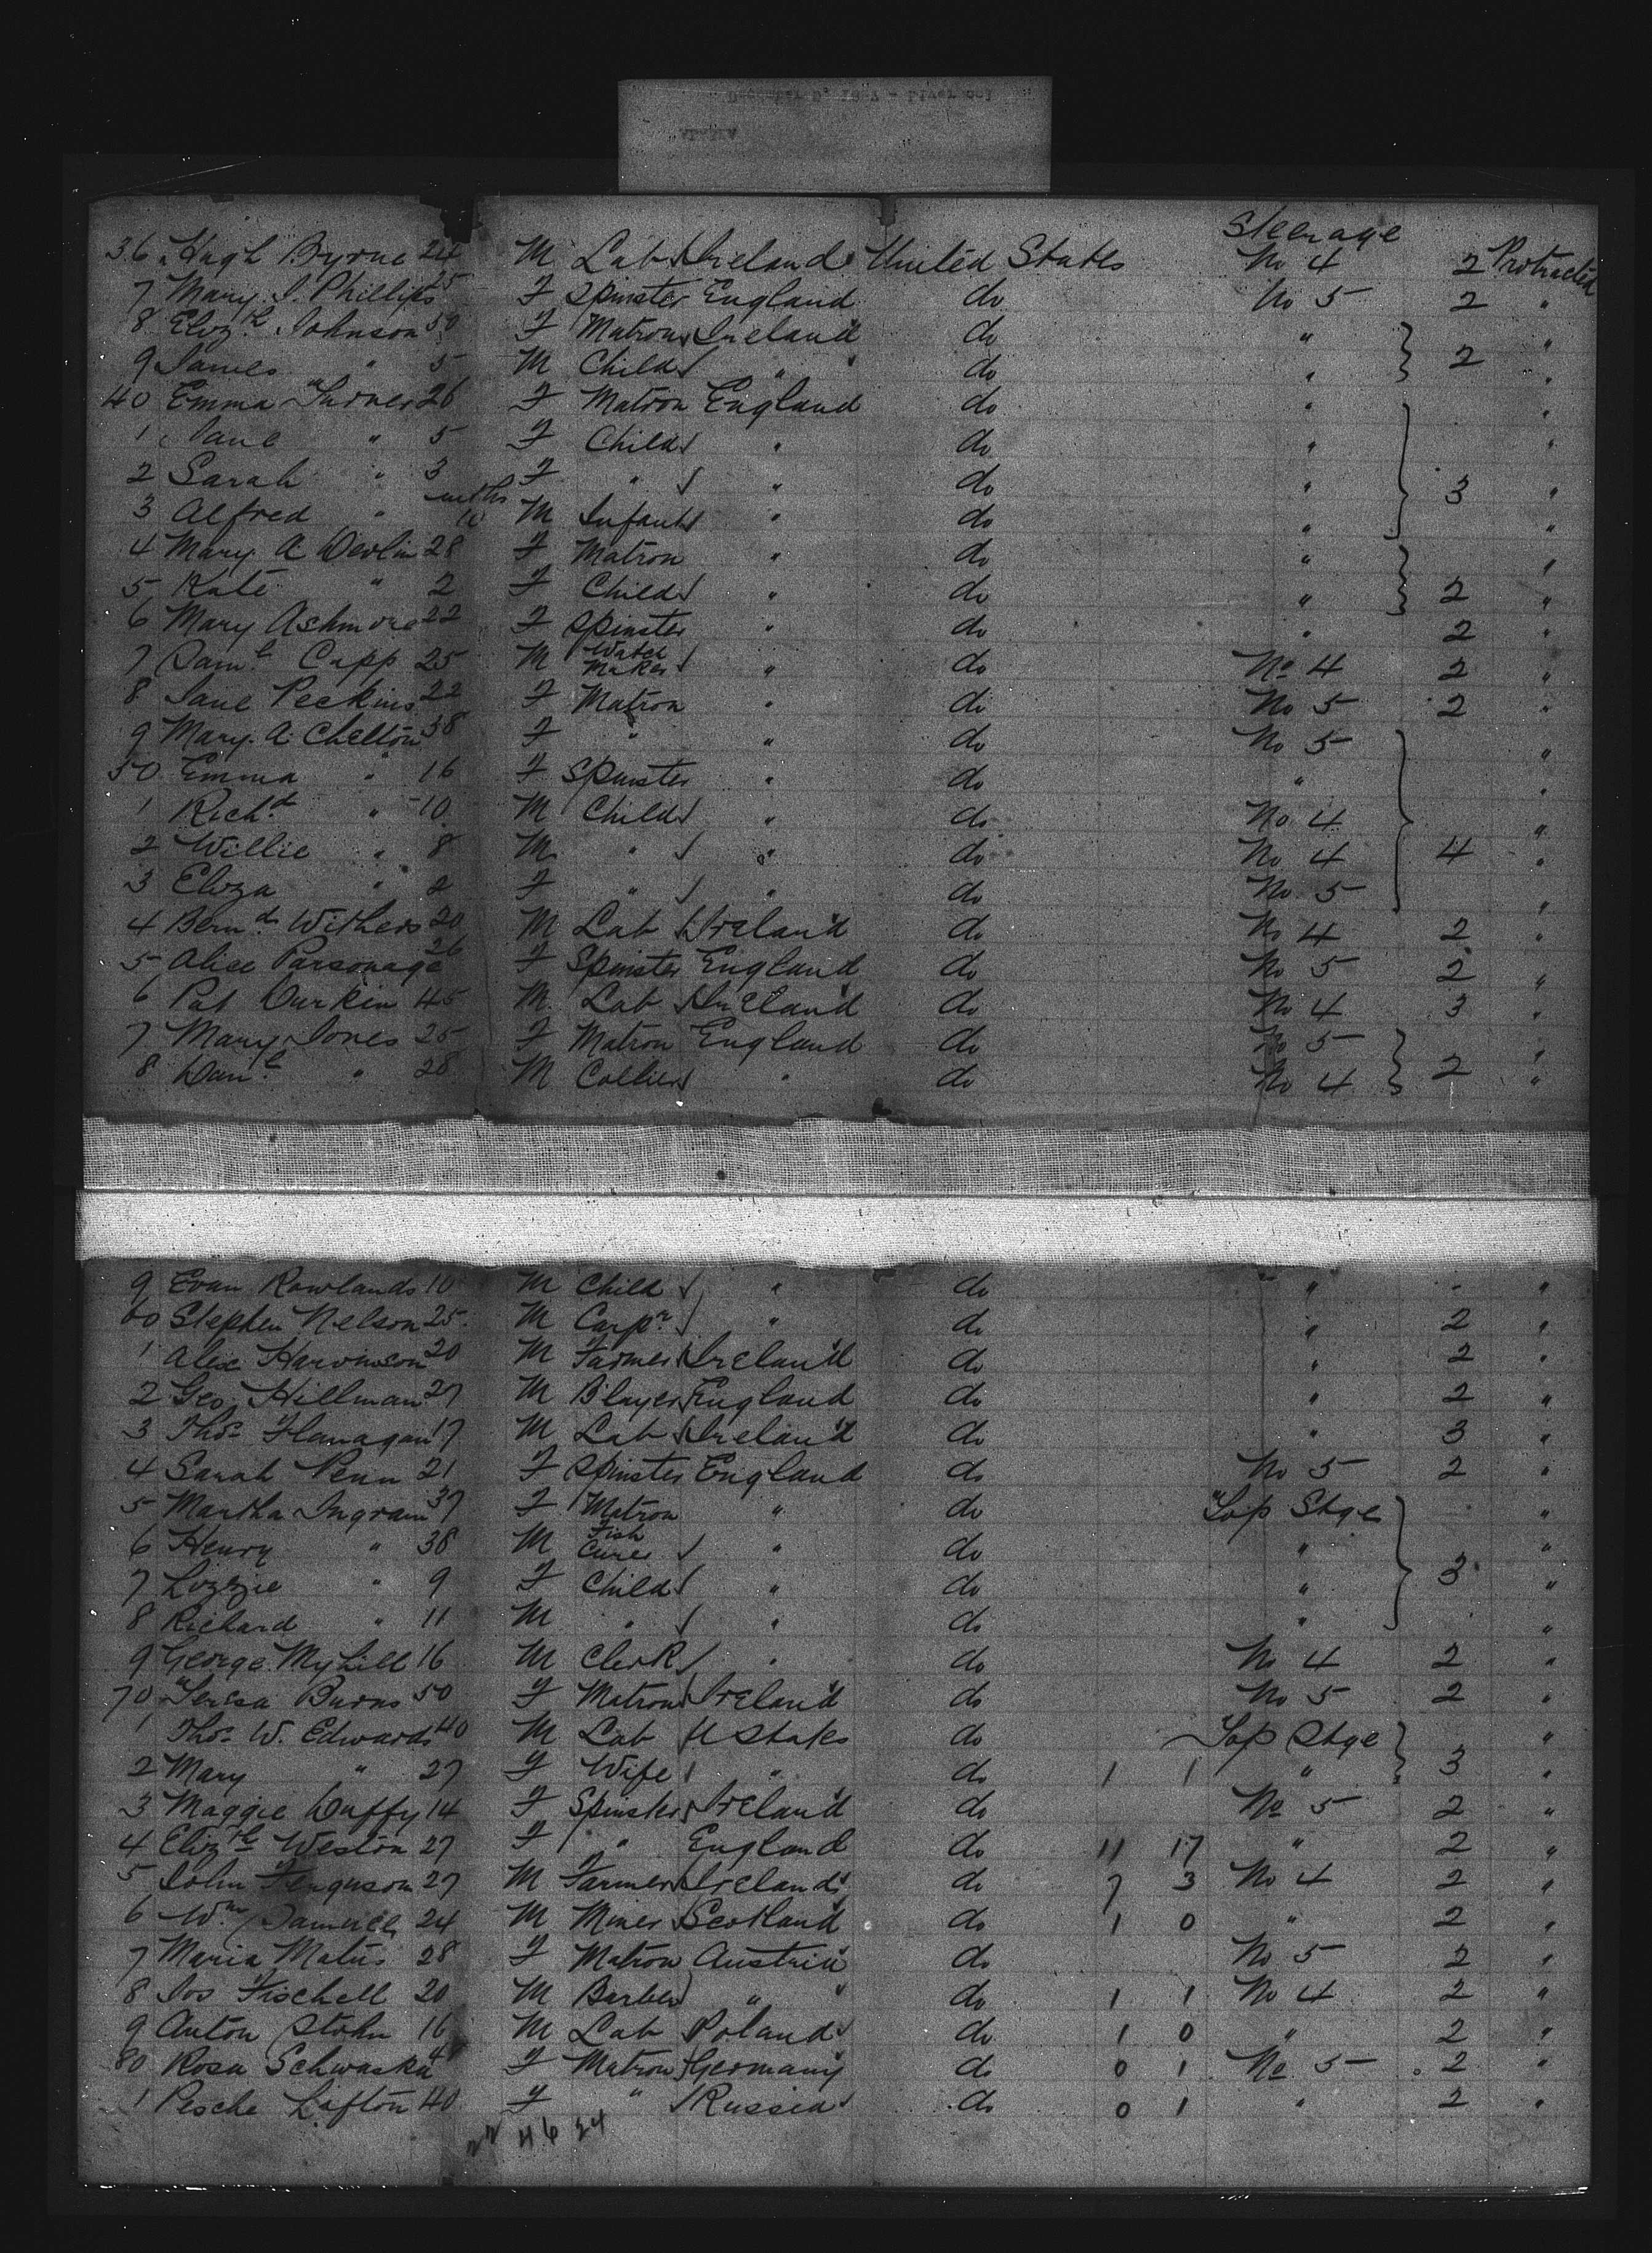 Steerage
36 Hugh Byrne 24 M Lab Ireland United States No 4 2 Protracted
7 Mary J. Phillips 25 F Spinster England do No 5 2 "
8 Elizth Johnson 50 F Matron Ireland do " "
9 James " 5 M Child " do " 2 "
40 Emma Turner 26 F Matron England do " "
1 Jane " 5 F Child " do " "
2 Sarah " 3 F " " do " 3 "
mths
3 Alfred " 10 M Infant " do " "
4 Mary A Devlin 28 F Matron " do " "
5 Kate " 2 F Child " do " 2 "
6 Mary Ashmore 22 F Spinster " do " 2 "
7 Saml Capp 25 M Watch Maker " do No 4 2 "
8 Jane Peckins 22 F Matron " do No 5 2 "
9 Mary A Chelton 38 F " " do No 5 "
50 Emma " 16 F Spinster " do " "
1 Richd " 10 M Child " do No 4 "
2 Willie " 8 M " " do No 4 4 "
3 Eliza " 2 F " " do No 5 "
4 Bernd Withers 20 M Lab Ireland do No 4 2 "
5 Alice Parsonage 26 F Spinster England do No 5 2 "
6 Pat Durkin 45 M Lab Ireland do No 4 3 "
7 Mary Jones 25 F Matron England do No 5 "
8 Danl " 28 M Collier " do No 4 2 "
9 Evan Rowlands 10 M Child " do " - "
60 Stephen Nelson 25 M Carpr " do " 2 "
1 Alex 20 M Farmer Ireland do " 2 "
2 Geo Hillman 27 M Blayer England do " 2 "
3 Thos Flanagan 17 M Lab Ireland do " 3 "
4 Sarah Penn 21 F Spinster England do No 5 2 "
5 Martha Ingram 37 F Matron " do Top Stge "
6 Henry " 38 M Fish Curer " do " "
7 Lizzie " 9 F Child " do " 3 "
8 Richard " 11 M " " do " "
9 George Myhill 16 M Clerk " do No 4 2 "
70 Teresa Burns 50 F Matron Ireland do No 5 2 "
1 Thos W. Edwards 40 M Lab U States do Top Stge "
2 Mary " 27 F Wife " do 1 1 " 3 "
3 Maggie Duffy 14 F Spinster Ireland do No 5 2 "
4 Elizth Weston 27 F " England do 11 17 " 2 "
5 John Ferguson 27 M Farmer Ireland do 7 3 No 4 2 "
6 Wm Samuel 24 M Miner Scotland do 1 0 " 2 "
7 Maria Matus 28 F Matron Austria do No 5 2 "
8 Jos Fischell 20 M Barber " do 1 1 No 4 2 "
9 Anton Stohn 16 M Lab Poland do 1 0 " 2 "
80 Rosa Schwaska F Matron Germany do 0 1 No 5 2 "
1 Pesche Lifton 40 F " Russia do 0 1 " 2 "
22 46 24